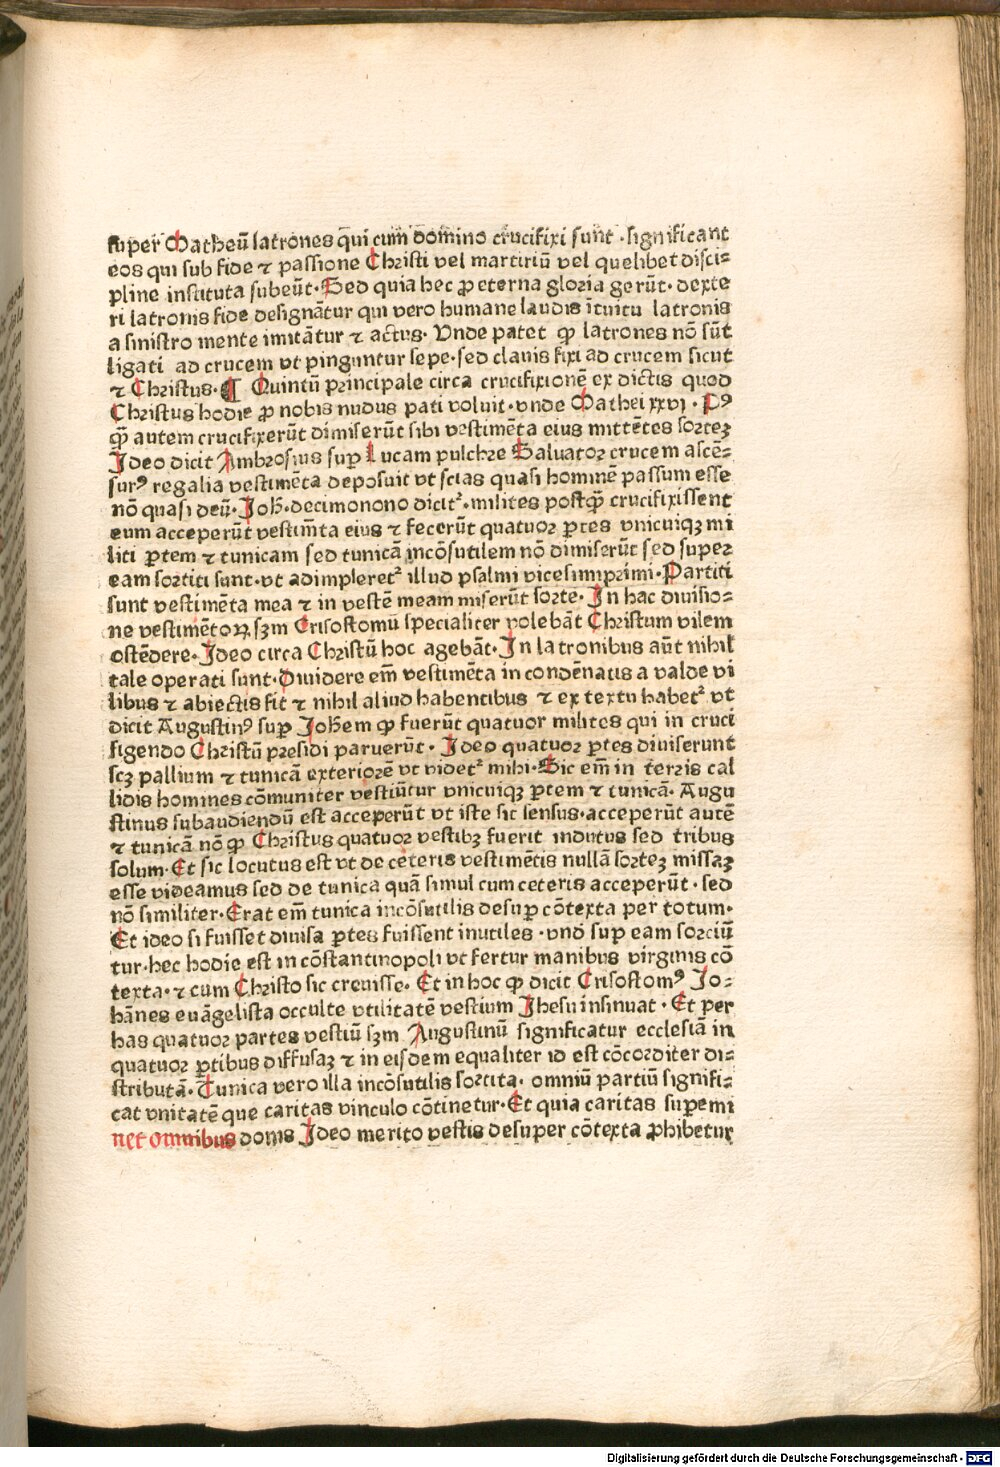 super Matheū latrones qui cum domino crucifixi sunt ·significant
eos qui sub fide ⁊ passione Christi vel martiriū vel quelibet disci⸗
pline instituta subeūt· Sed quia hec ꝓ eterna gloria gerūt· dexte
ri latronis fide designātur qui vero humane laudis ītuitu latronis
a sinistro mente imitātur ⁊ actus· Vnde patet ꝙ latrones nō sūt
ligati ad crucem vt pinguntur sepe·sed clauis fixi ad crucem sicut
⁊ Christus·¶ Quintū principale circa crucifixionē ex dictis quod
Christus hodie ꝓ nobis nudus pati voluit·vnde Mathei xxvj · Pꝰ
ꝙ̄ autem crucifixerūt dimiserūt sibi vestimēta eius mittētes sorteꝫ
Jdeo dicit Ambrosius suꝑ Lucam pulchre Saluator crucem ascē⸗
surꝰ regalia vestimēta deposuit vt scias quasi hominē passum esse
nō quasi deū· Joh̄·decimonono dicit᷑·milites postꝙ̄ crucifixissent
eum acceperūt vestim̄ta eius ⁊ fecerūt quatuor ꝑtes vnicuiqꝫ mi
liti ꝑtem ⁊ tunicam sed tunicā incōsutilem nō dimiserūt sed super
eam sortiti sunt·vt adimpleret᷑ illud psalmi vicesimiprimi·Partiti
sunt vestimēta mea ⁊ in vestē meam miserūt sorte· Jn hac diuisio⸗
ne vestimētoꝝ sꝫm Crisostomū specialiter volebāt Christum vilem
ostēdere·Jdeo circa Christū hoc agebāt·Jn latronibus aūt nihil
tale operati sunt·Diuidere em̄ vestimēta in condēnatis a valde vi
libus ⁊ abiectis fit ⁊ nihil aliud habentibus ⁊ ex textu habet᷑ vt
dicit Augustinꝰ suꝑ Joh̄em ꝙ fuerūt quatuor milites qui in cruci
figendo Christū presidi paruerūt· Jdeo quatuor ꝑtes diuiserunt
scꝫ pallium ⁊ tunicā exteriorē vt videt᷑ mihi·Sic em̄ in terris cal
lidis homines cōmuniter vestiūtur vnicuiqꝫ ꝑtem ⁊ tunicā· Augu
stinus subaudiendū est acceperūt vt iste sic sensus·acceperūt autē
⁊ tunicā nō ꝙ Christus quatuor vestibꝫ fuerit indutus sed tribus
solum·Et sic locutus est vt de ceteris vestimētis nullā sorteꝫ missaꝫ
esse videamus sed de tunica quā simul cum ceteris acceperūt·sed
nō similiter·Erat em̄ tunica incōsutilis desuꝑ cōtexta per totum·
Et ideo si fuisset diuisa ꝑtes fuissent inutiles ·vnd suꝑ eam sorciū
tur·hec hodie est in cōstantinopoli vt fertur manibus virginis cō
texta·⁊ cum Christo sic creuisse· Et in hoc ꝙ dicit Crisostomꝰ Jo⸗
hānes euāgelista occulte vtilitatē vestium Jhesu insinuat · Et per
has quatuor partes vestiū sꝫm Augustinū significatur ecclesiā in
quatuor ꝑtibus diffusaꝫ ⁊ in eisdem equaliter id est cōcorditer di⸗
stributā·Tunica vero illa incōsutilis sortita· omniū partiū signifi⸗
cat vnitatē que caritas vinculo cōtinetur·Et quia caritas suꝑemi
net omnibus donis Jdeo merito vestis desuper cōtexta ꝓhibetur
Digitalisierung gefördert durch die Deutsche Forschungsgemeinschaft - DFG